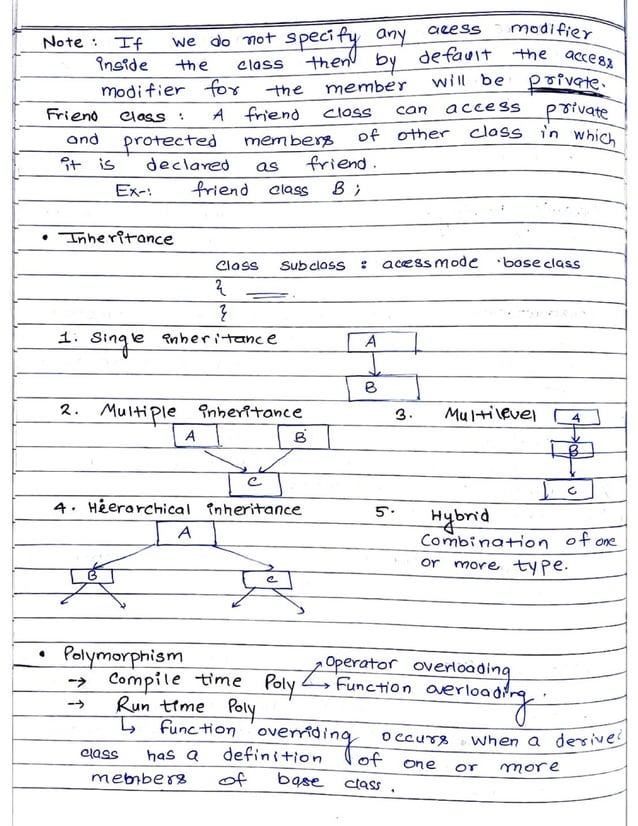 Note : If we do not specify any acess modifier
inside the class then by default the access
modifier for the member will be private.
Friend class : A friend class can access private
and protected members of other class in which
it is declared as friend.
Ex-: friend class B ;
• Inheritance
class subclass : acessmode baseclass
{
}
1. Single inheritance
A
B
2. Multiple inheritance
A B
C
3. Multilevel
A
B
C
4. Hierarchical inheritance
A
B C
5. Hybrid
Combination of one
or more type.
• Polymorphism
→ Compile time Poly
Operator overloading
Function overloading.
→ Run time Poly
↳ Function overriding occurs when a derived
class has a definition of one or more
members of base class.